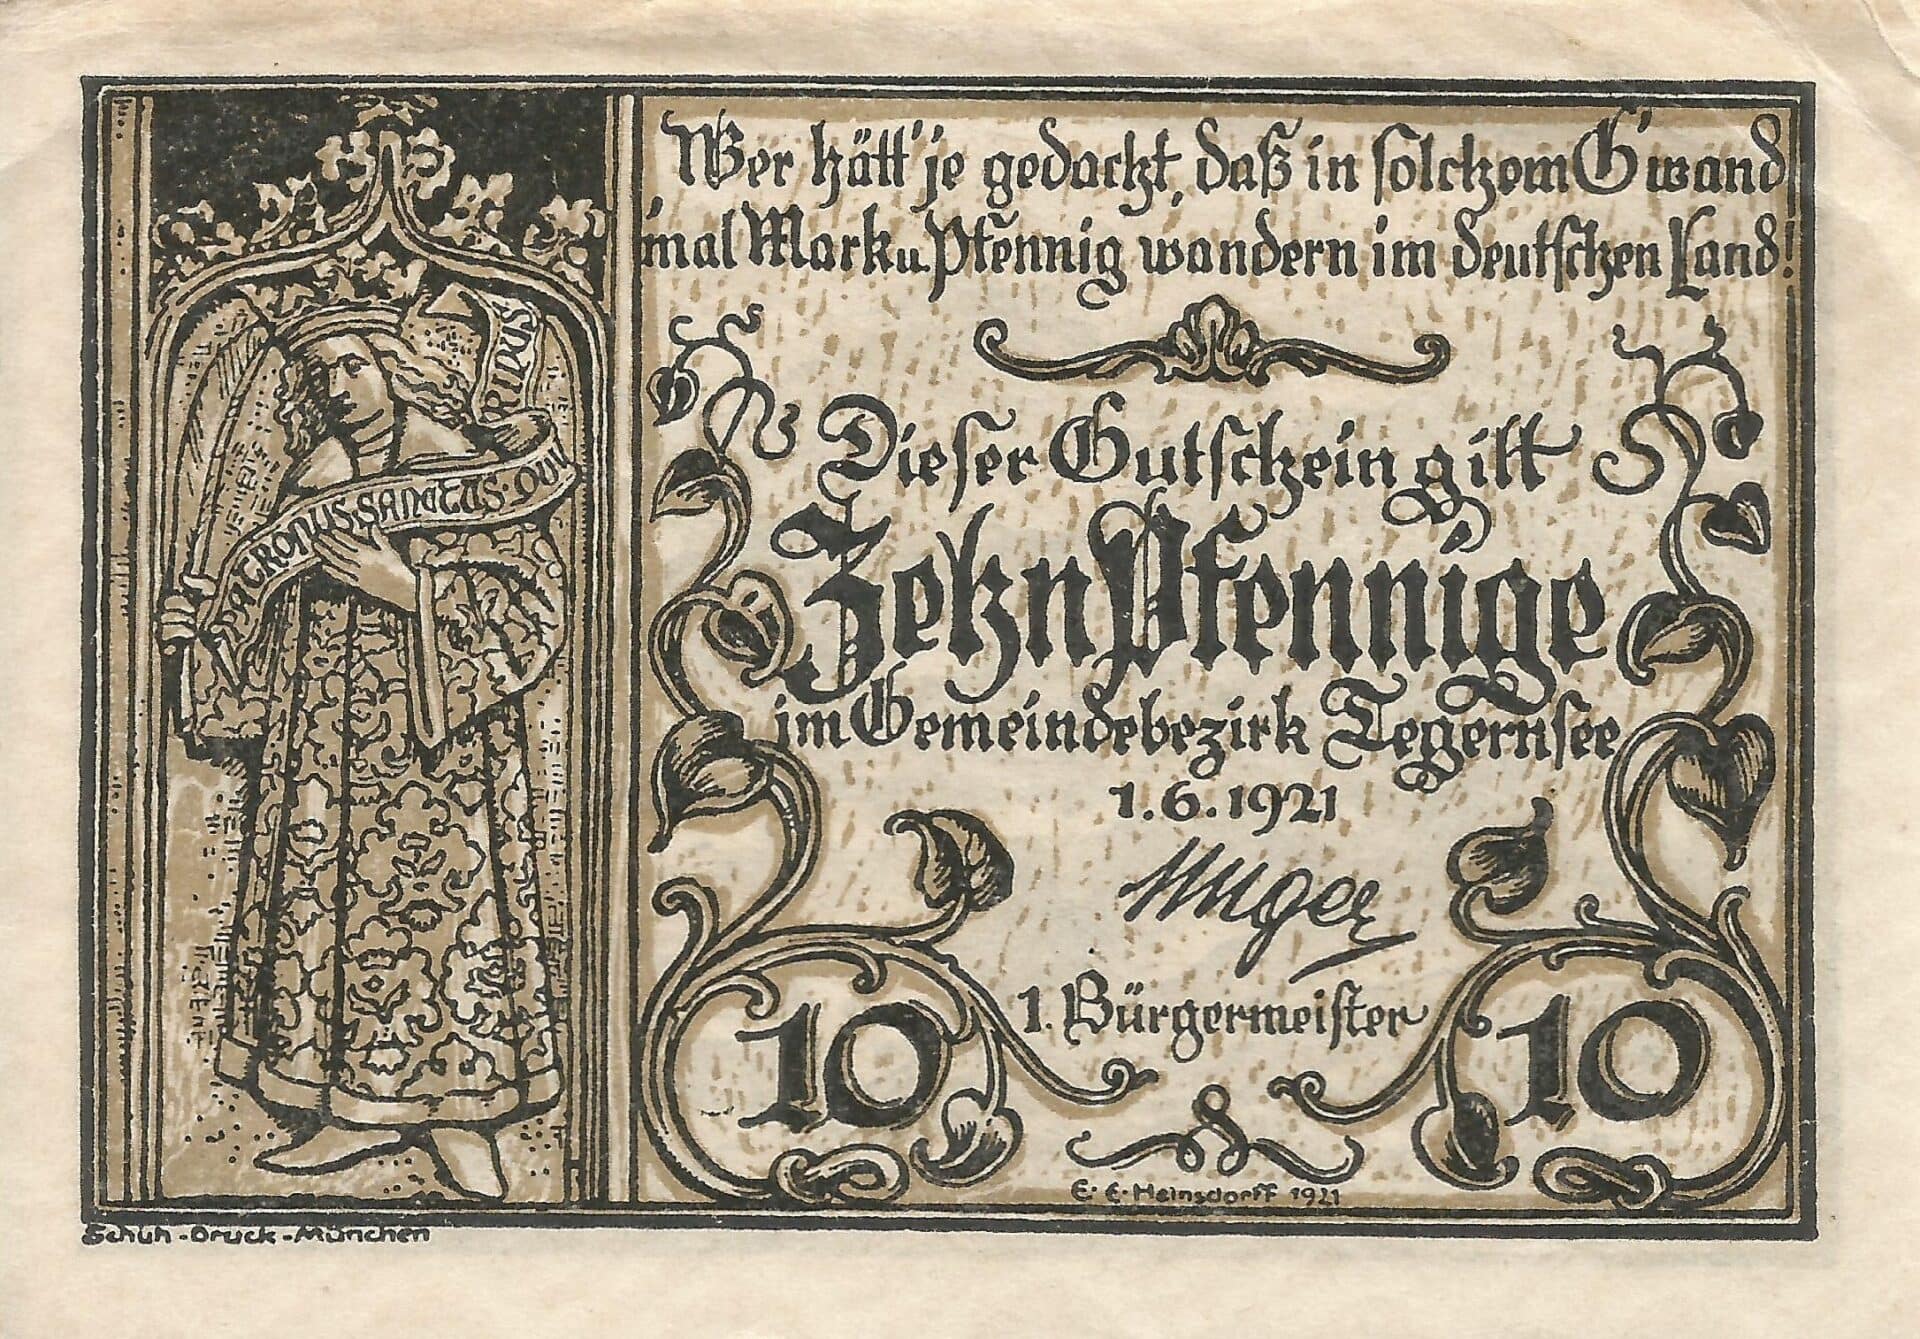 Wer hätt' je gedacht, daß in solchem G'wand
'mal Mark u. Pfennig wandern im deutschen Land!
PATRONUS·SANCTUS·QUI
RINUS
Dieser Gutschein gilt
Zehn Pfennige
im Gemeindebezirk Tegernsee
1.6.1921
1. Bürgermeister
10 10
E. E. Heinsdorff 1921
Schuh-Druck-München